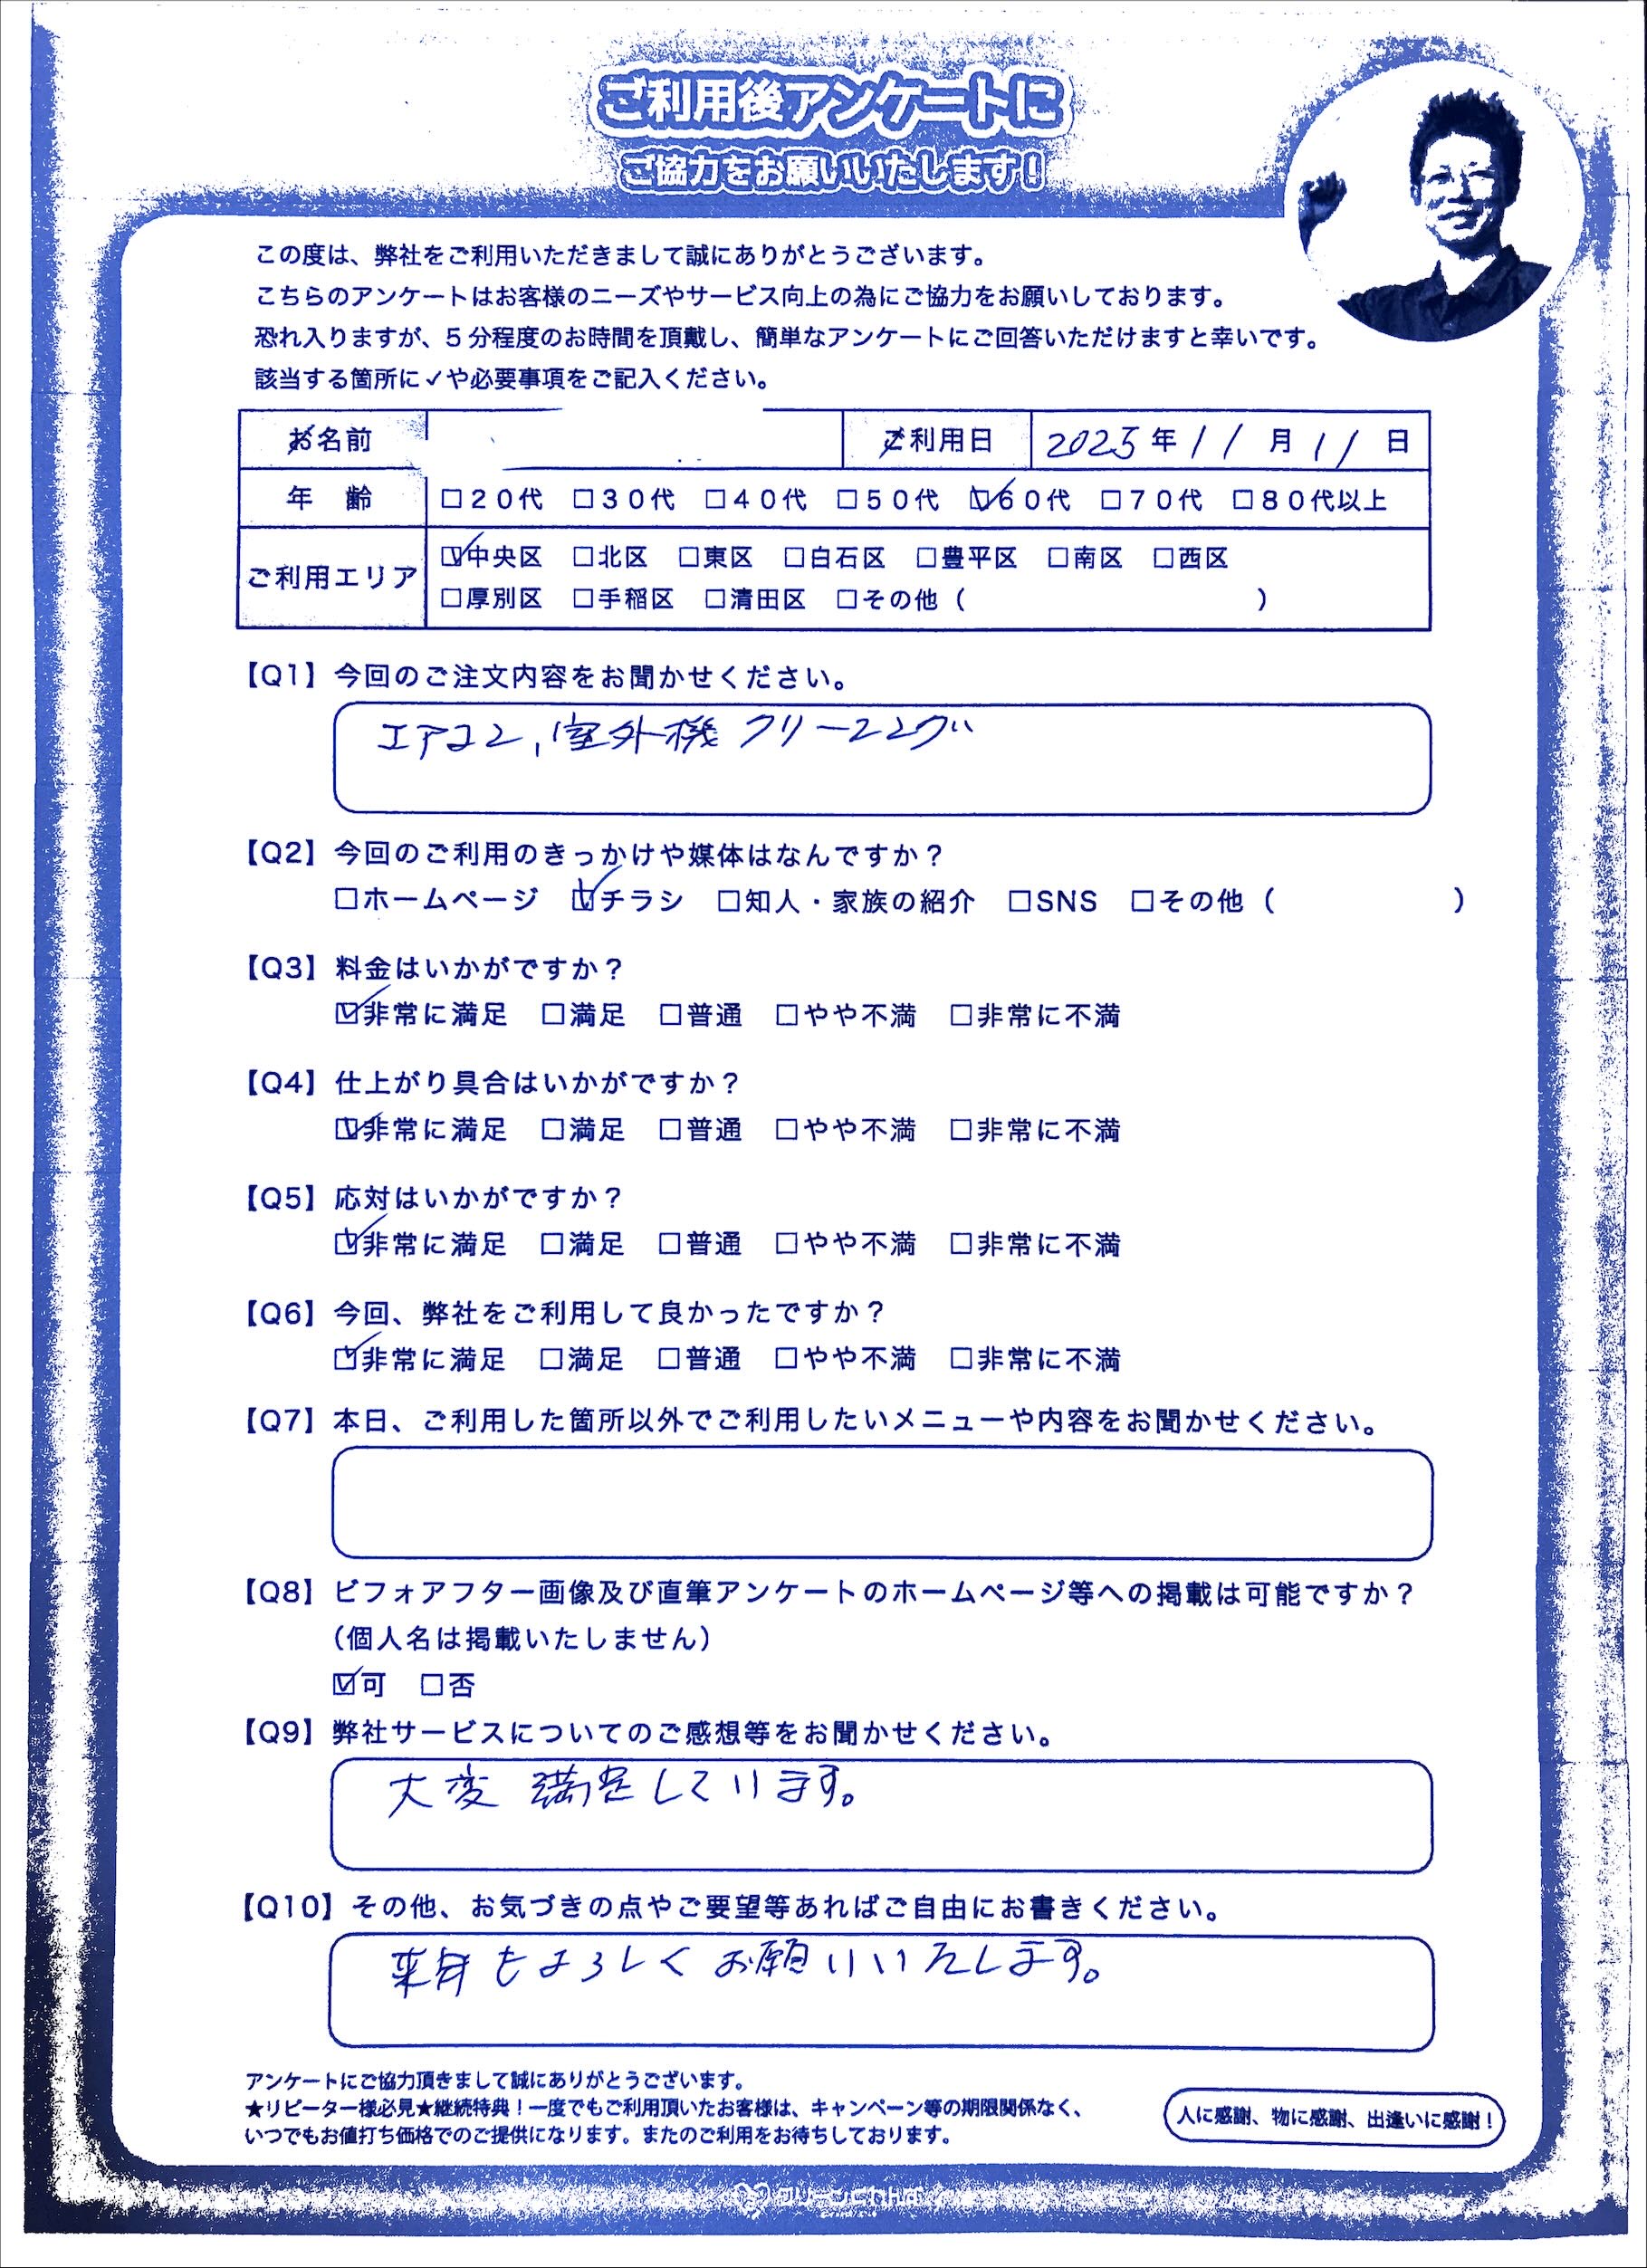 ご利用後アンケートに
ご協力をお願いいたします!
この度は、弊社をご利用いただきまして誠にありがとうございます。
こちらのアンケートはお客様のニーズやサービス向上の為にご協力をお願いしております。
恐れ入りますが、5分程度のお時間を頂戴し、簡単なアンケートにご回答いただけますと幸いです。
該当する箇所に✓や必要事項をご記入ください。
お名前 ご利用日 2025年11月11日
年 齢 □20代 □30代 □40代 □50代 ☑60代 □70代 □80代以上
ご利用エリア ☑中央区 □北区 □東区 □白石区 □豊平区 □南区 □西区
□厚別区 □手稲区 □清田区 □その他( )
【Q1】今回のご注文内容をお聞かせください。
エアコン、室外機クリーニング
【Q2】今回のご利用のきっかけや媒体はなんですか?
□ホームページ ☑チラシ □知人・家族の紹介 □SNS □その他( )
【Q3】料金はいかがですか?
☑非常に満足 □満足 □普通 □やや不満 □非常に不満
【Q4】仕上がり具合はいかがですか?
☑非常に満足 □満足 □普通 □やや不満 □非常に不満
【Q5】応対はいかがですか?
☑非常に満足 □満足 □普通 □やや不満 □非常に不満
【Q6】今回、弊社をご利用して良かったですか?
☑非常に満足 □満足 □普通 □やや不満 □非常に不満
【Q7】本日、ご利用した箇所以外でご利用したいメニューや内容をお聞かせください。
【Q8】ビフォアフター画像及び直筆アンケートのホームページ等への掲載は可能ですか?
(個人名は掲載いたしません)
☑可 □否
【Q9】弊社サービスについてのご感想等をお聞かせください。
大変 満足しています。
【Q10】その他、お気づきの点やご要望等あればご自由にお書きください。
来年もよろしくお願いいたします。
アンケートにご協力頂きまして誠にありがとうございます。
★リピーター様必見★継続特典!一度でもご利用頂いたお客様は、キャンペーン等の期限関係なく、
いつでもお値打ち価格でのご提供になります。またのご利用をお待ちしております。
人に感謝、物に感謝、出逢いに感謝!